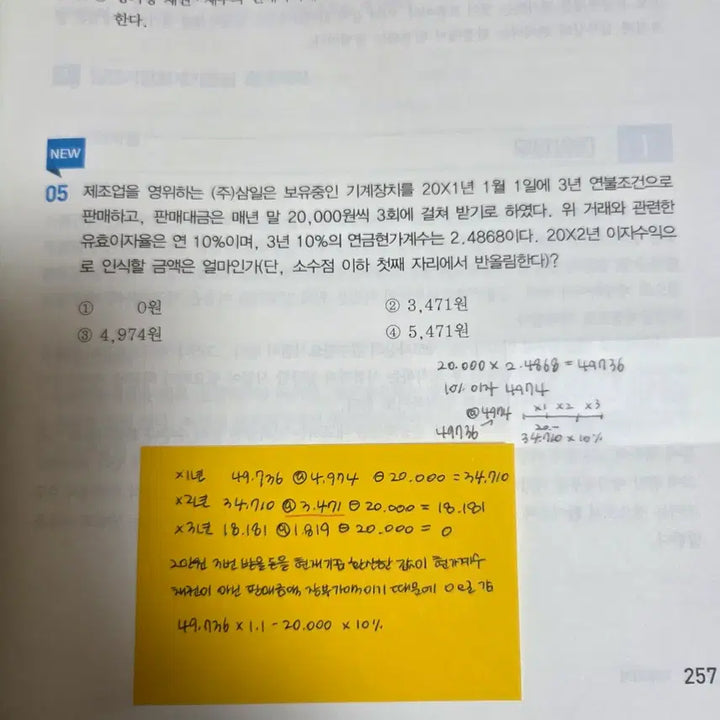 한다.
NEW
05 제조업을 영위하는 (주)삼일은 보유중인 기계장치를 20X1년 1월 1일에 3년 연불조건으로
판매하고, 판매대금은 매년 말 20,000원씩 3회에 걸쳐 받기로 하였다. 위 거래와 관련한
유효이자율은 연 10%이며, 3년 10%의 연금현가계수는 2.4868이다. 20X2년 이자수익으
로 인식할 금액은 얼마인가(단, 소수점 이하 첫째 자리에서 반올림한다)?
① 0원
② 3,471원
③ 4,974원
④ 5,471원
20.000 × 2.4868 = 49736
10% 이자 4974
⊕4974 x1 x2 x3
49736 20.-
34.710 × 10%
x1년 49.736 ⊕4.974 ⊖20.000 = 34.710
x2년 34.710 ⊕3.471 ⊖20.000 = 18.181
x3년 18.181 ⊕1.819 ⊖20.000 = 0
2만원 3번 받을돈을 현재가로 환산한 값이 현가계수
채권이 아닌 판매금액 장부가이기 때문에 0으로 감
49.736 × 1.1 - 20.000 × 10%
257